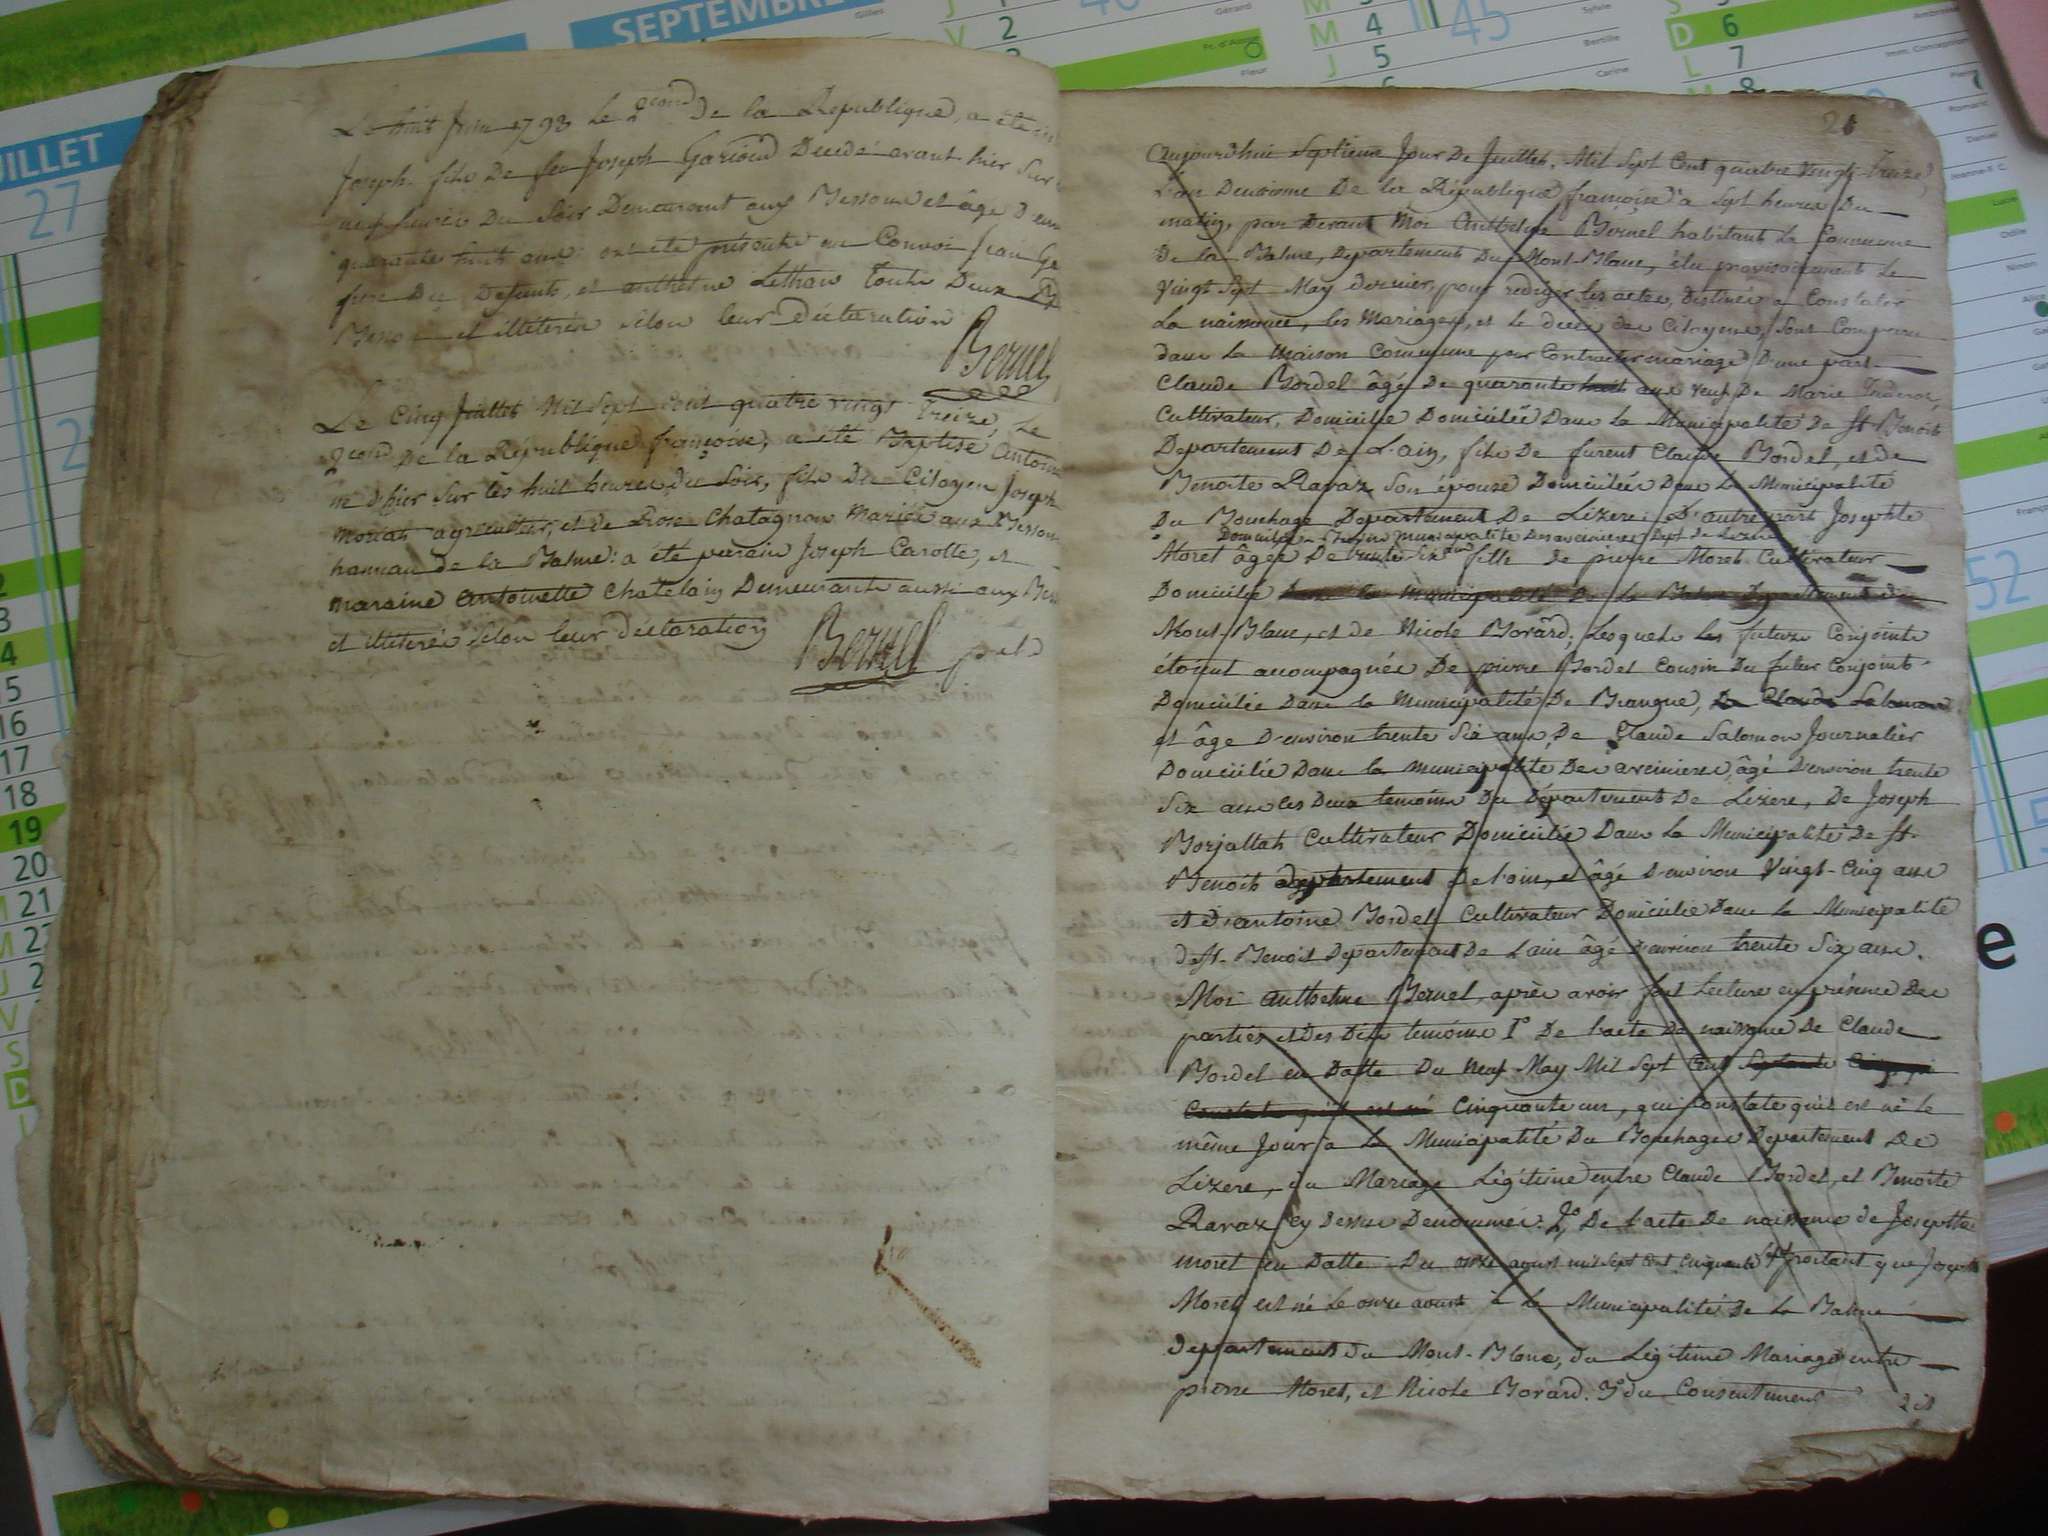 SEPTEMBRE
UILLET
27
Le huit Juin 1793 Le 2cond De la Republique, a été
Joseph fils De feu Joseph Gariond Decedé avant hier Sur
neuf heures Du Soir Demeurant aux Bessons et âgé D'environ
quarante huit ans. ont été présents au Convoi Jean
frere Du Defunt, et anthelme Lethan toute Deux
et illitérés Selon leur Déclaration
Bernel
Le Cinq Juillet Mil Sept cent quatre vingt Treize, Le
2cond De la République françoise, a été Baptisé Antoine
né d'hier Sur les huit heures Du Soir, fils Du Citoyen Joseph
Moriat agriculteur, et de Rose Chatagnon Mariés aux Bessons
hameau de la Balme: a été parain Joseph Carotte, et
maraine Antoinette Chatelain Demeurants aussi aux
et illitérés Selon leur déclaration
Bernel
21
Aujourdhui Septieme Jour De Juillet, Mil Sept Cent quatre Vingt Treize
L'an Deuxieme De la République françoise à Sept heures Du
matin, par Devant Moi Anthelme Bernel habitant La Commune
De la Balme, Departement Du Mont-Blanc, élu provisoirement Le
Vingt Sept May dernier, pour rediger les actes, Destinés a Constater
La naissance, les Mariages, et le décés des Citoyens, Sont Comparu
dans La Maison Commune pour Contracter mariage D'une part
Claude Bordel âgé De quarante huit ans Veuf De Marie
Cultivateur, Domicilié Domiciliée Dans La Municipalité De St Benoit
Departement De L'ain, fils De furent Claude Bordel, et de
Benoite Ravaz Son épouse Domiciliés Dans La Municipalité
Du Bouchage Departement De Lizere. D'autre part Josephte
Domiciliée municipalité Desavenieres Dept de Lizere
Moret âgée De trente Six ans fille De pierre Moret Cultivateur
Domicilié Dans la Municipalité De la Balme Departement Du
Mont-Blanc, et de Nicole Borard; Lesquels les futurs Conjoints
étoient accompagnés De pierre Bordel Cousin Du futur Conjoint
Domicilié Dans la Municipalité De Brangue, De Claude Salomon
et âgé D'environ trente Six ans, De Claude Salomon Journalier
Domicilié Dans la municipalité Des aveinieres, âgé D'environ trente
Six ans les Deux temoins Du Département De Lizere, De Joseph
Borjallat Cultivateur Domicilié Dans La Municipalité De St
Benoit departement de l'ain, et âgé D'environ Vingt-Cinq ans
et D'antoine Bordel Cultivateur Domicilié Dans La Municipalité
de St. Benoit Departement De L'ain âgé D'environ trente Six ans.
Moi anthelme Bernel, après avoir fait Lecture en présence Des
parties et Des Dits temoins 1° De l'acte De naissance De Claude
Bordel en Datte Du Neuf May Mil Sept Cent Septante Cinq qui
Constate qu'il est né Cinquante un, qui Constate qu'il est né le
même Jour à La Municipalité Du Bouchage Departement De
Lizere, du Mariage Légitime entre Claude Bordel, et Benoite
Ravaz cy Dessus Denommés. 2° De l'acte De naissance de Josephte
moret en Datte Du onze aoust mil Sept Cent Cinquante Sept portant que Josephte
Moret est né Le onze aoust à La Municipalité De La Balme
Departement Du Mont-Blanc, du Légitime Mariage entre
pierre Moret, et Nicole Borard. 3° du Consentement